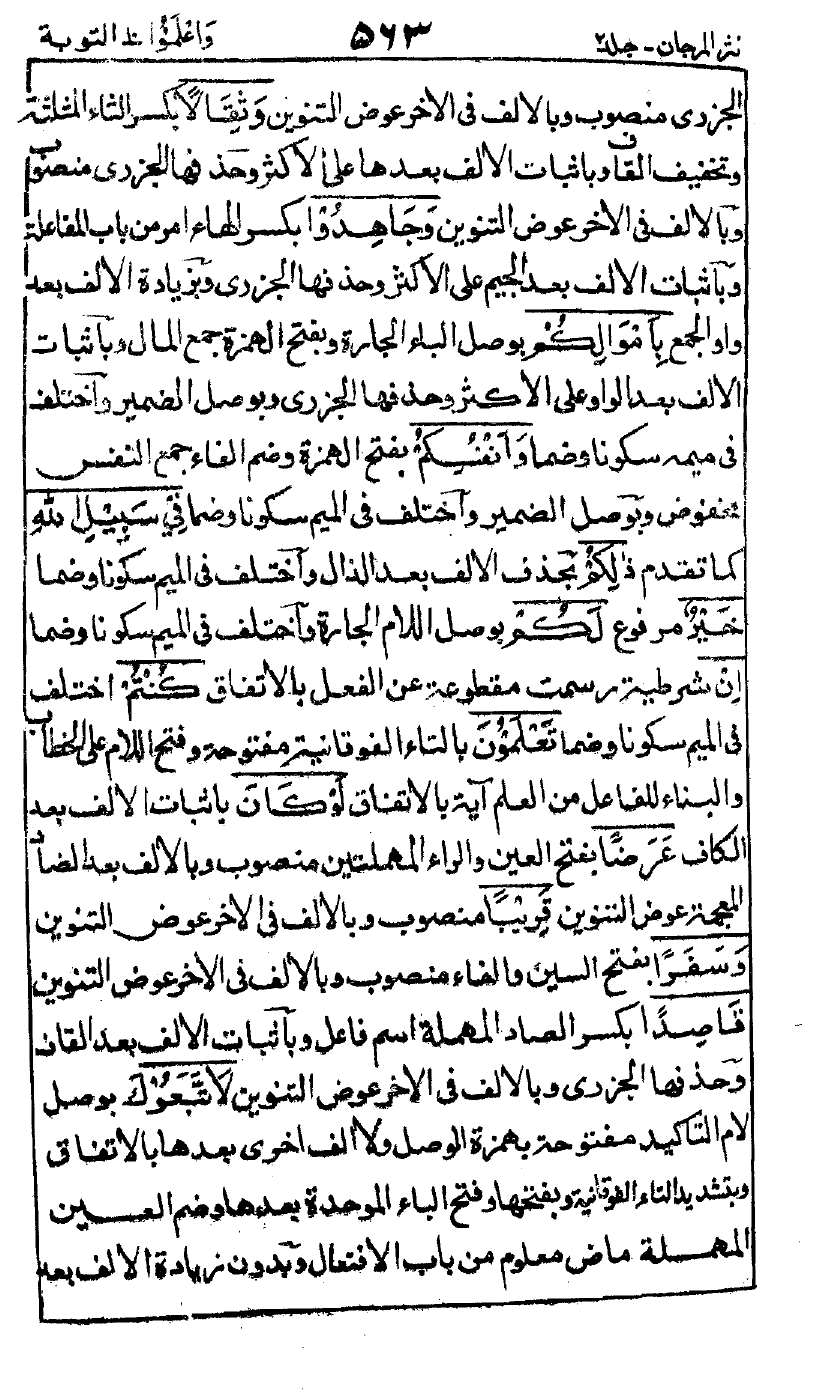 نثر المرجان - جلد٢ ٥٦٣ واعلموا ١٠ التوبة
الجزرى منصوب وبالالف فى الاخر عوض التنوين وَثِقَالًا بكسر الثاء المثلثة
وتخفيف القاف وباثبات الالف بعدها على الأكثر وحذفها الجزرى منصوب
وبالالف فى الاخر عوض التنوين وَجَاهِدُوْا بكسر الهاء امر من باب المفاعلة
وباثبات الالف بعد الجيم على الأكثر وحذفها الجزرى وبزيادة الالف بعد
واو الجمع بِأَمْوَالِكُمْ بوصل الباء الجارة وبفتح الهمزة جمع المال وباثبات
الالف بعد الواو على الأكثر وحذفها الجزرى وبوصل الضمير واختلف
فى ميمه سكونا وضما وَأَنْفُسِكُمْ بفتح الهمزة وضم الفاء جمع النفس
مخفوض وبوصل الضمير واختلف فى الميم سكونا وضما فِيْ سَبِيْلِ اللهِ
كما تقدم ذٰلِكُمْ بحذف الالف بعد الذال واختلف فى الميم سكونا وضما
خَيْرٌ مرفوع لَكُمْ بوصل اللام الجارة واختلف فى الميم سكونا وضما
اِنْ شرطية رسمت مقطوعة عن الفعل بالاتفاق كُنْتُمْ اختلف
فى الميم سكونا وضما تَعْلَمُوْنَ بالتاء الفوقانية مفتوحة وفتح اللام على الخطاب
والبناء للفاعل من العلم آية بالاتفاق لَوْكَانَ باثبات الالف بعد
الكاف عَرَضًا بفتح العين والراء المهملتين منصوب وبالالف بعد الضاد
المعجمة عوض التنوين قَرِيْبًا منصوب وبالالف فى الاخر عوض التنوين
وَسَفَرًا بفتح السين والفاء منصوب وبالالف فى الاخر عوض التنوين
قَاصِدًا بكسر الصاد المهملة اسم فاعل وباثبات الالف بعد القاف
وحذفها الجزرى وبالالف فى الاخر عوض التنوين لَاتَّبَعُوْكَ بوصل
لام التاكيد مفتوحة بهمزة الوصل ولا ألف اخرى بعدها بالاتفاق
وبتشديد التاء الفوقانية وبفتحها وفتح الباء الموحدة بعدها وضم العين
المهملة ماض معلوم من باب الافتعال وبدون زيادة الالف بعد